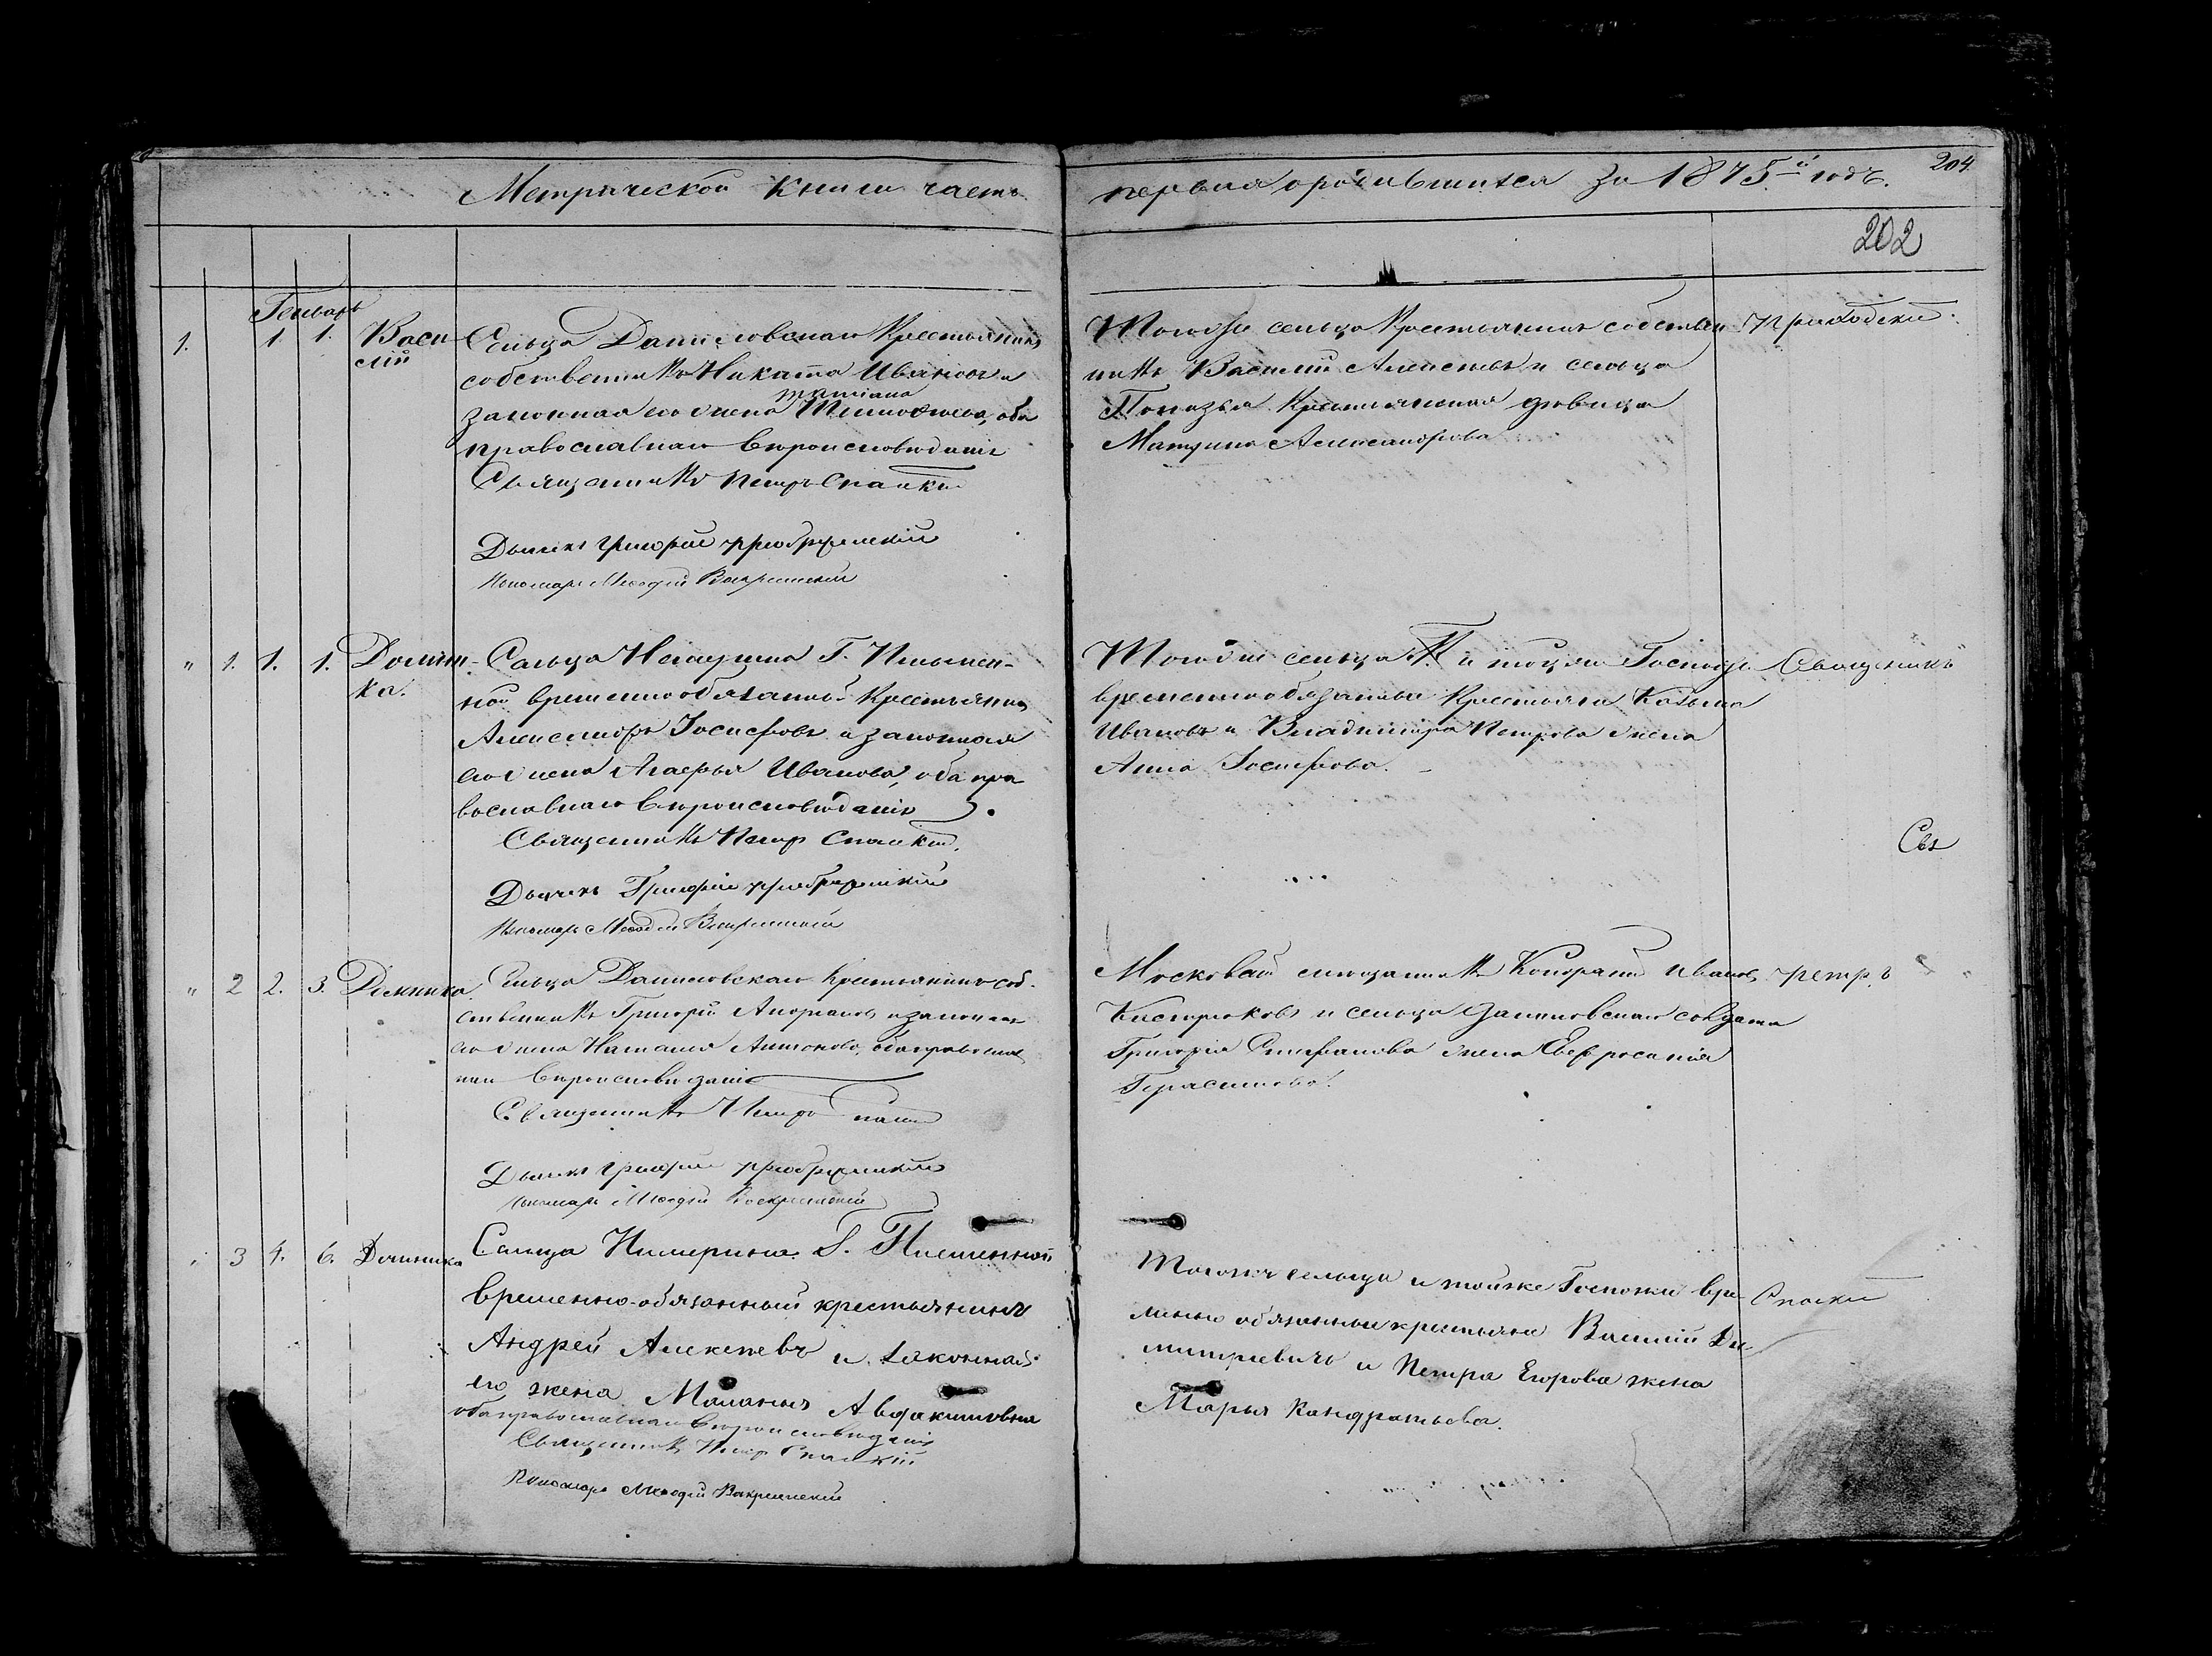 Метрической книги часть первая о родившихся за 1875й годъ. 204
202
Генварь
1. 1. 1. Васи
лій
Сельца Даниловскаго Крестьянинъ
собственникъ Никита Ивановъ и
законная его жена Татіана Тимофеева, оба
православнаго вероисповѣданія
Священникъ Петръ Спаскій
Дьячекъ Григорій Преображенскій
Пономарь Меѳодій Воскресенскій
Тогоже сельца Крестьянинъ собствен
никъ Василій Алексѣевъ и сельца
Крестьянская дѣвица
Матрена Александрова
Приходскій
" 1. 1. 1. Домни
ка.
Сельца Г. Племен-
ной временнообязанный Крестьянинъ
Александръ Іосифовъ и законная
его жена Агафья Иванова, оба пра
вославнаго вѣроисповѣданія
Священникъ Петръ Спаскій.
Дьячекъ Григорій Преображенскій
Пономарь Меѳодій Воскресенскій
Тогоже сельца и тойже Госпожи
временнообязанные Крестьяне Козьма
Ивановъ и Владиміра Петрова жена
Анна Іосифова.
Священникъ
Свя
" 2 2. 3. Домника.
Сельца Даниловскаго Крестьянинъ соб-
ственникъ Григорій Андреяновъ и законная
его жена Наталья Антонова, оба православ
наго вѣроисповѣданія
Священникъ Петръ Спаскій
Дьячекъ Григорій Преображенскій
Пономарь Меѳодій Воскресенскій
Московскій мещанинъ Кондратій Ивановъ
и сельца Даниловскаго солдата
Григорія Стефанова жена Евфросинія
Герасимова.
Петръ
" 3 4. 6. Домника
Сельца Г. Племенной
временно-обязанный крестьянинъ
Андрей Алексѣевъ и законная
его жена Маланья Авдакимовна
оба православнаго вѣроисповѣданія
Священникъ Петръ Спаскій
Пономарь Меѳодій Воскресенскій
Тогоже сельца и тойже Госпожи вре
менно обязанные крестьяне Василій Ди
митріевичъ и Петра Егорова жена
Марья Кандратьева.
Спаскій